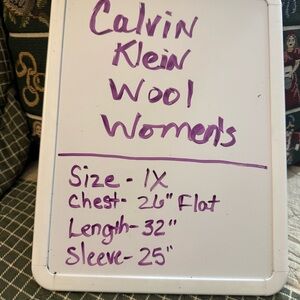 Calvin
Klein
Wool
Women's
Size - 1X
Chest- 26" Flat
Length- 32"
Sleeve- 25"